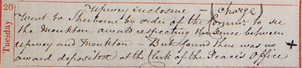 20
Tuesday
Upwey inclosure — Charge
Went to Sherborne by order of the Commrs. to see
the Monkton awards respecting the fence between
Upwey and Monkton — But found there was no
award deposited at the Clerk of the Peace's Office